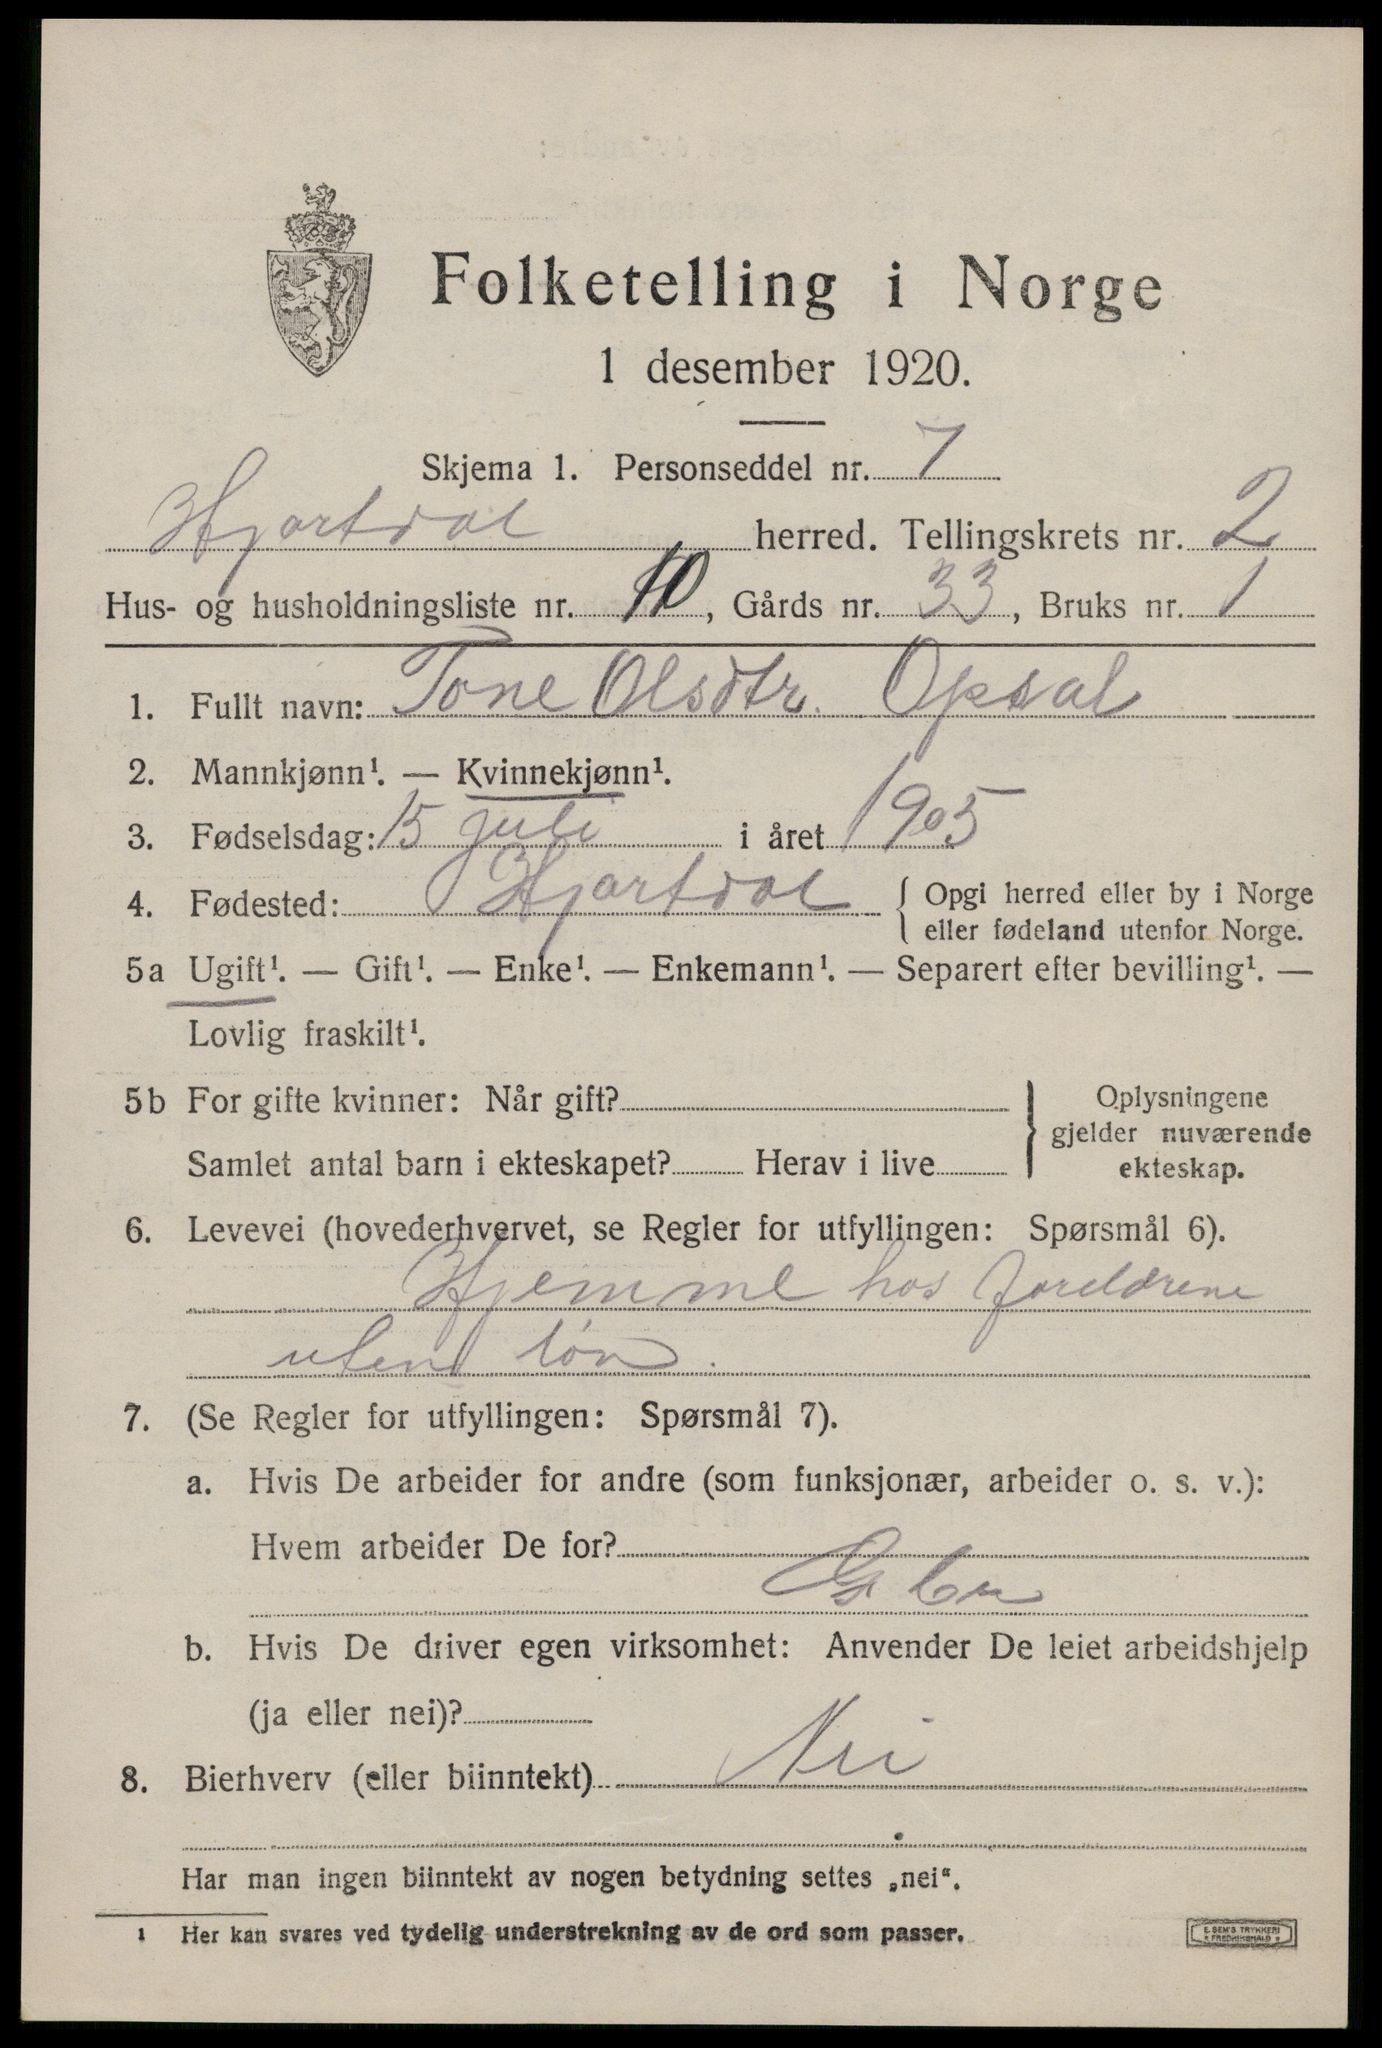 Folketelling i Norge
1 desember 1920.
Skjema 1. Personseddel nr. 7
Hjartdal herred. Tellingskrets nr. 2
Hus- og husholdningsliste nr. 10, Gårds nr. 33, Bruks nr. 1
1. Fullt navn: Tone Olsdtr. Opsal
2. Mannkjønn¹. — Kvinnekjønn¹.
3. Fødselsdag: 15 juli i året 1905
4. Fødested: Hjartdal { Opgi herred eller by i Norge
eller fødeland utenfor Norge.
5a Ugift¹. — Gift¹. — Enke¹. — Enkemann¹. — Separert efter bevilling¹. —
Lovlig fraskilt¹.
5b For gifte kvinner: Når gift?
Samlet antal barn i ekteskapet? Herav i live
} Oplysningene
gjelder nuværende
ekteskap.
6. Levevei (hovederhvervet, se Regler for utfyllingen: Spørsmål 6).
Hjemme hos foreldrene
uten løn.
7. (Se Regler for utfyllingen: Spørsmål 7).
a. Hvis De arbeider for andre (som funksjonær, arbeider o. s. v.):
Hvem arbeider De for?
b. Hvis De driver egen virksomhet: Anvender De leiet arbeidshjelp
(ja eller nei)?
8. Bierhverv (eller biinntekt) Nei
Har man ingen biinntekt av nogen betydning settes „nei“.
1 Her kan svares ved tydelig understrekning av de ord som passer.
E. SEM'S TRYKKERI
FREDRIKSHALD